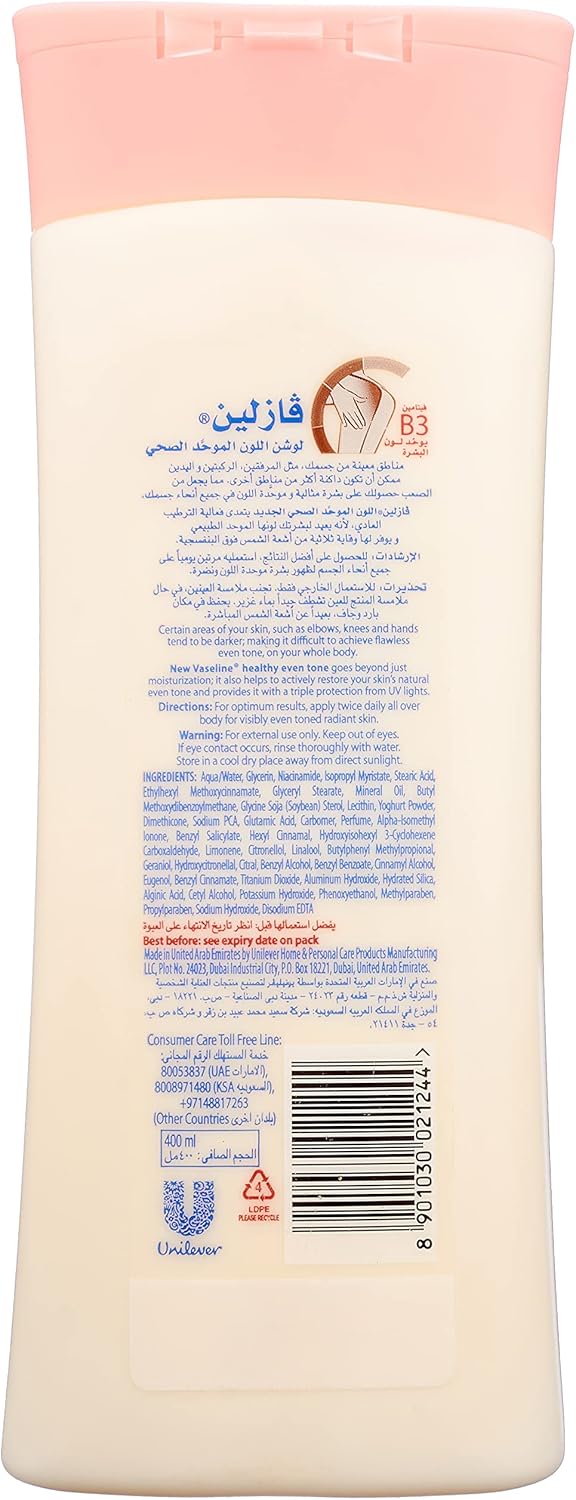 ڤازلين®
لوشن اللون الموحَّد الصحي
فيتامين
B3
يوحّد لـون
البشرة
مناطق معينة من جسمك، مثل المرفقين، الركبتين و اليدين
ممكن أن تكون داكنة أكثر من مناطق أخرى. مما يجعل من
الصعب حصولك على بشرة مثالية و موحّدة اللون في جميع أنحاء جسمك.
ڤازلين® اللون الموحَّد الصحي الجديد يتعدى فعالية الترطيب
العادي، لأنه يعيد لبشرتك لونها الموحد الطبيعي
و يوفر لها وقاية ثلاثية من أشعة الشمس فوق البنفسجية.
الإرشادات: للحصول على أفضل النتائج، استعمليه مرتين يومياً على
جميع أنحاء الجسم لظهور بشرة موحدة اللون ونضرة.
تحذيرات: للاستعمال الخارجي فقط. تجنب ملامسة العينين، في حال
ملامسة المنتج للعين تشطف جيداً بماء غزير. يحفظ في مكان
بارد وجاف، بعيداً عن أشعة الشمس المباشرة.
Certain areas of your skin, such as elbows, knees and hands
tend to be darker; making it difficult to achieve flawless
even tone, on your whole body.
New Vaseline® healthy even tone goes beyond just
moisturization; it also helps to actively restore your skin's natural
even tone and provides it with a triple protection from UV lights.
Directions: For optimum results, apply twice daily all over
body for visibly even toned radiant skin.
Warning: For external use only. Keep out of eyes.
If eye contact occurs, rinse thoroughly with water.
Store in a cool dry place away from direct sunlight.
INGREDIENTS: Aqua/Water, Glycerin, Niacinamide, Isopropyl Myristate, Stearic Acid,
Ethylhexyl Methoxycinnamate, Glyceryl Stearate, Mineral Oil, Butyl
Methoxydibenzoylmethane, Glycine Soja (Soybean) Sterol, Lecithin, Yoghurt Powder,
Dimethicone, Sodium PCA, Glutamic Acid, Carbomer, Perfume, Alpha-Isomethyl
Ionone, Benzyl Salicylate, Hexyl Cinnamal, Hydroxyisohexyl 3-Cyclohexene
Carboxaldehyde, Limonene, Citronellol, Linalool, Butylphenyl Methylpropional,
Geraniol, Hydroxycitronellal, Citral, Benzyl Alcohol, Benzyl Benzoate, Cinnamyl Alcohol,
Eugenol, Benzyl Cinnamate, Titanium Dioxide, Aluminum Hydroxide, Hydrated Silica,
Alginic Acid, Cetyl Alcohol, Potassium Hydroxide, Phenoxyethanol, Methylparaben,
Propylparaben, Sodium Hydroxide, Disodium EDTA
يفضل استعمالها قبل: انظر تاريخ الانتهاء على العبوة
Best before: see expiry date on pack
Made in United Arab Emirates by Unilever Home & Personal Care Products Manufacturing
LLC, Plot No. 74023, Dubai Industrial City, P.O. Box 18221, Dubai, United Arab Emirates.
صنع في الإمارات العربية المتحدة بواسطة يونيليفر لتصنيع منتجات العناية الشخصية
والمنزلية ش.ذ.م.م - قطعة رقم ٢٤٠٢٣ - مدينة دبي الصناعية - ص.ب. ١٨٢٢١ - دبي.
الموزع في المملكة العربيه السعوديه: شركة سعيد محمد عبيد بن زقر و شركاه ص ب.
٥٤ - جدة ٢١٤١١.
Consumer Care Toll Free Line:
خدمة المستهلك الرقم المجاني:
80053837 (UAE الامارات),
8008971480 (KSA السعوديه),
+97148817263
(Other Countries بلدان اخرى)
400 ml
الحجم الصافي: ٤٠٠مل
Unilever
4
LDPE
PLEASE RECYCLE
8 901030 021244 >